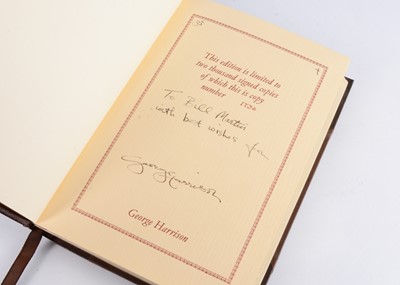 This edition is limited to
two thousand signed copies
of which this is copy
number 1756
To Bill Martin
with best wishes from
George Harrison
George Harrison